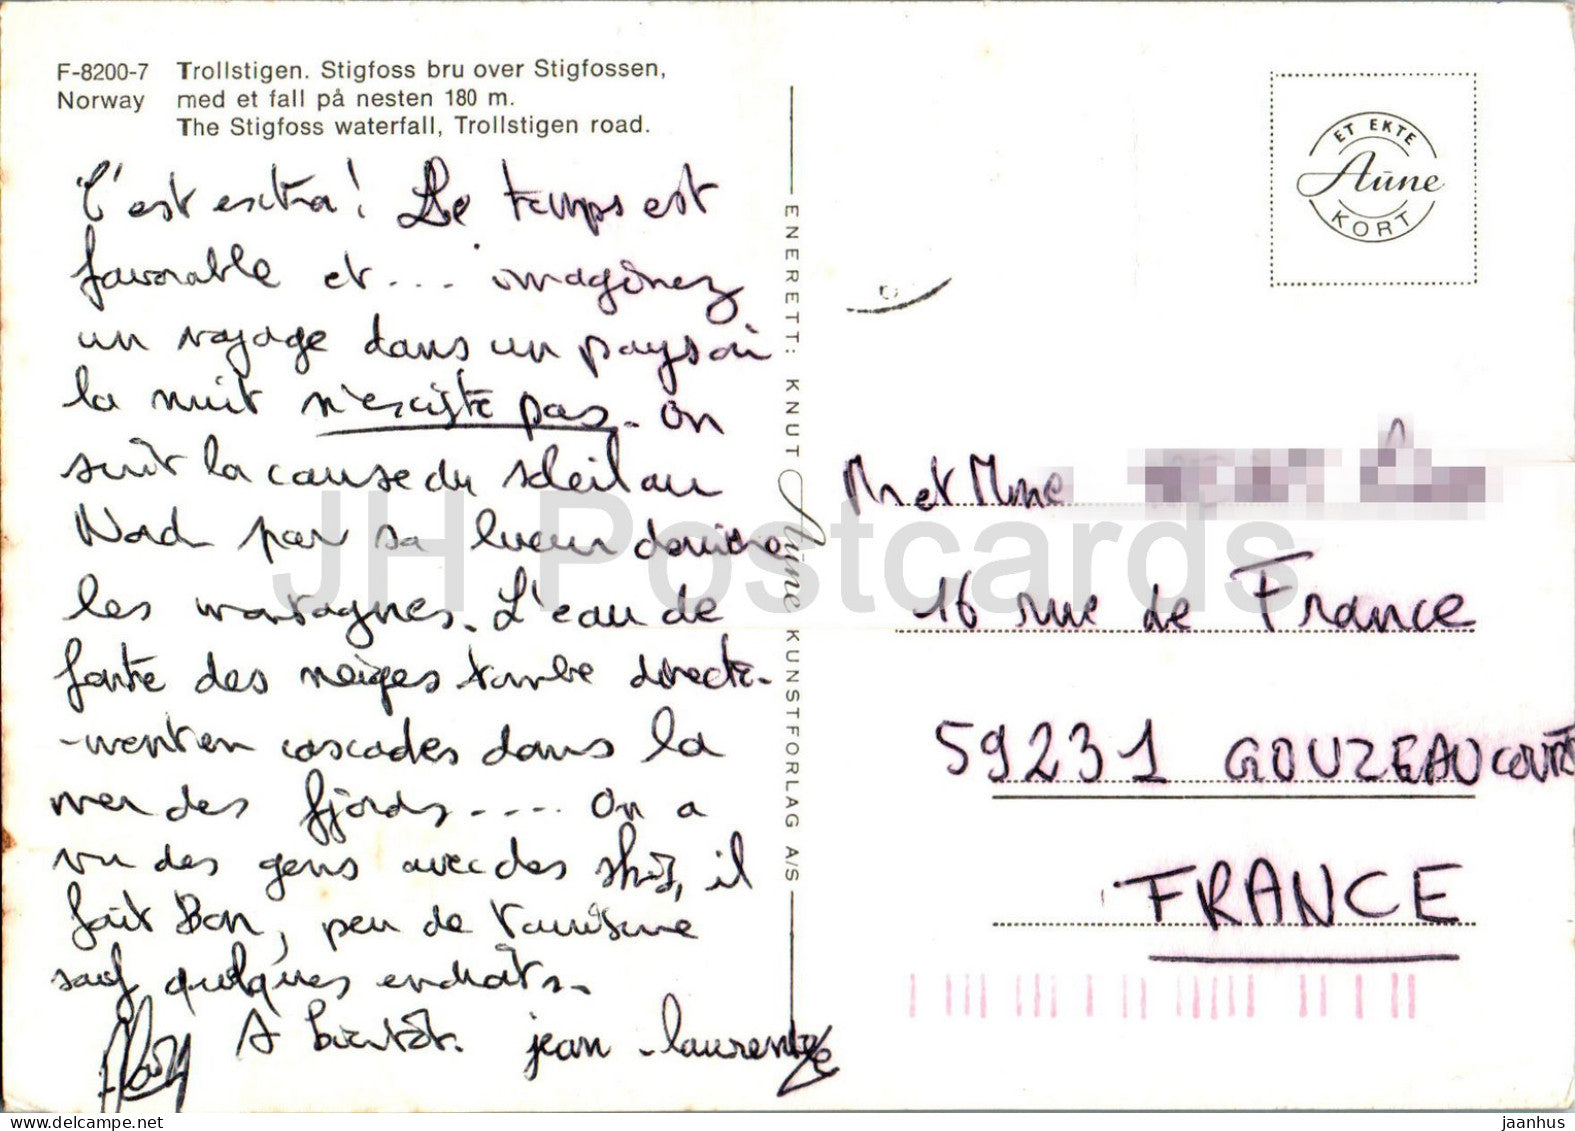 F-8200-7 Trollstigen. Stigfoss bru over Stigfossen,
Norway med et fall på nesten 180 m.
The Stigfoss waterfall, Trollstigen road.
C'est extra! Le temps est
favorable et... imaginez
un voyage dans un pays où
la nuit n'existe pas. On
suit la course du soleil au
Nord par sa lueur derrière
les montagnes. L'eau de
fonte des neiges tombe directe-
-ment en cascades dans la
mer des fjords.... On a
vu des gens avec des skis, il
fait Bon, peu de tourisme
sauf quelques endroits.
A bientôt. jean-laurent
ENERETT: KNUT Aune KUNSTFORLAG A/S
ET EKTE
Aune
KORT
M et Mme
16 rue de France
59231 GOUZEAUCOURT
FRANCE
JH Postcards
jaanhus